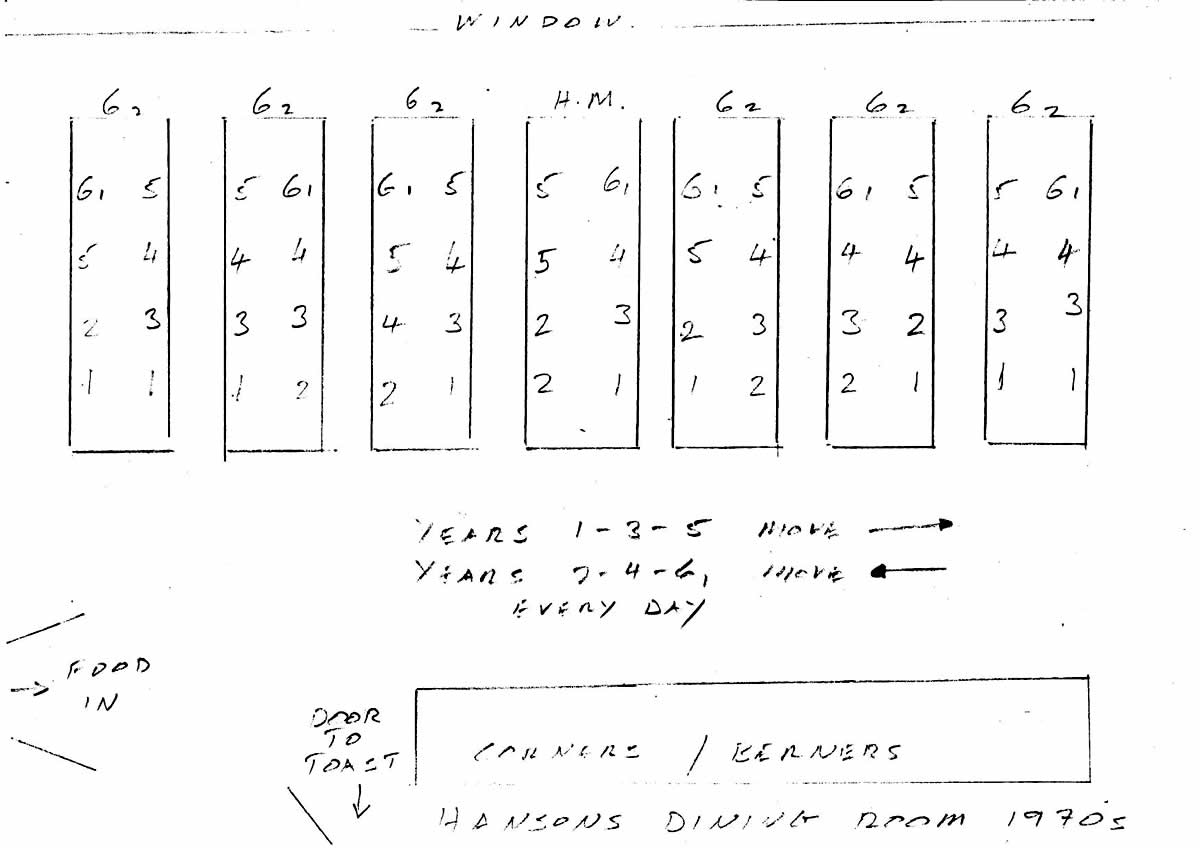 WINDOW.
6₂ 6₂ 6₂ H.M. 6₂ 6₂ 6₂
6₁ 5 5 6₁ 6₁ 5 5 6₁ 6₁ 5 6₁ 5 5 6₁
5 4 4 4 5 4 5 4 5 4 4 4 4 4
2 3 3 3 4 3 2 3 2 3 3 2 3 3
1 1 1 2 2 1 2 1 1 2 2 1 1 1
YEARS 1-3-5 MOVE →
YEARS 2-4-6₁ MOVE ←
EVERY DAY
→ FOOD
IN
DOOR
TO
TOAST
↓
CORNERS / BERNERS
HANSONS DINING ROOM 1970's